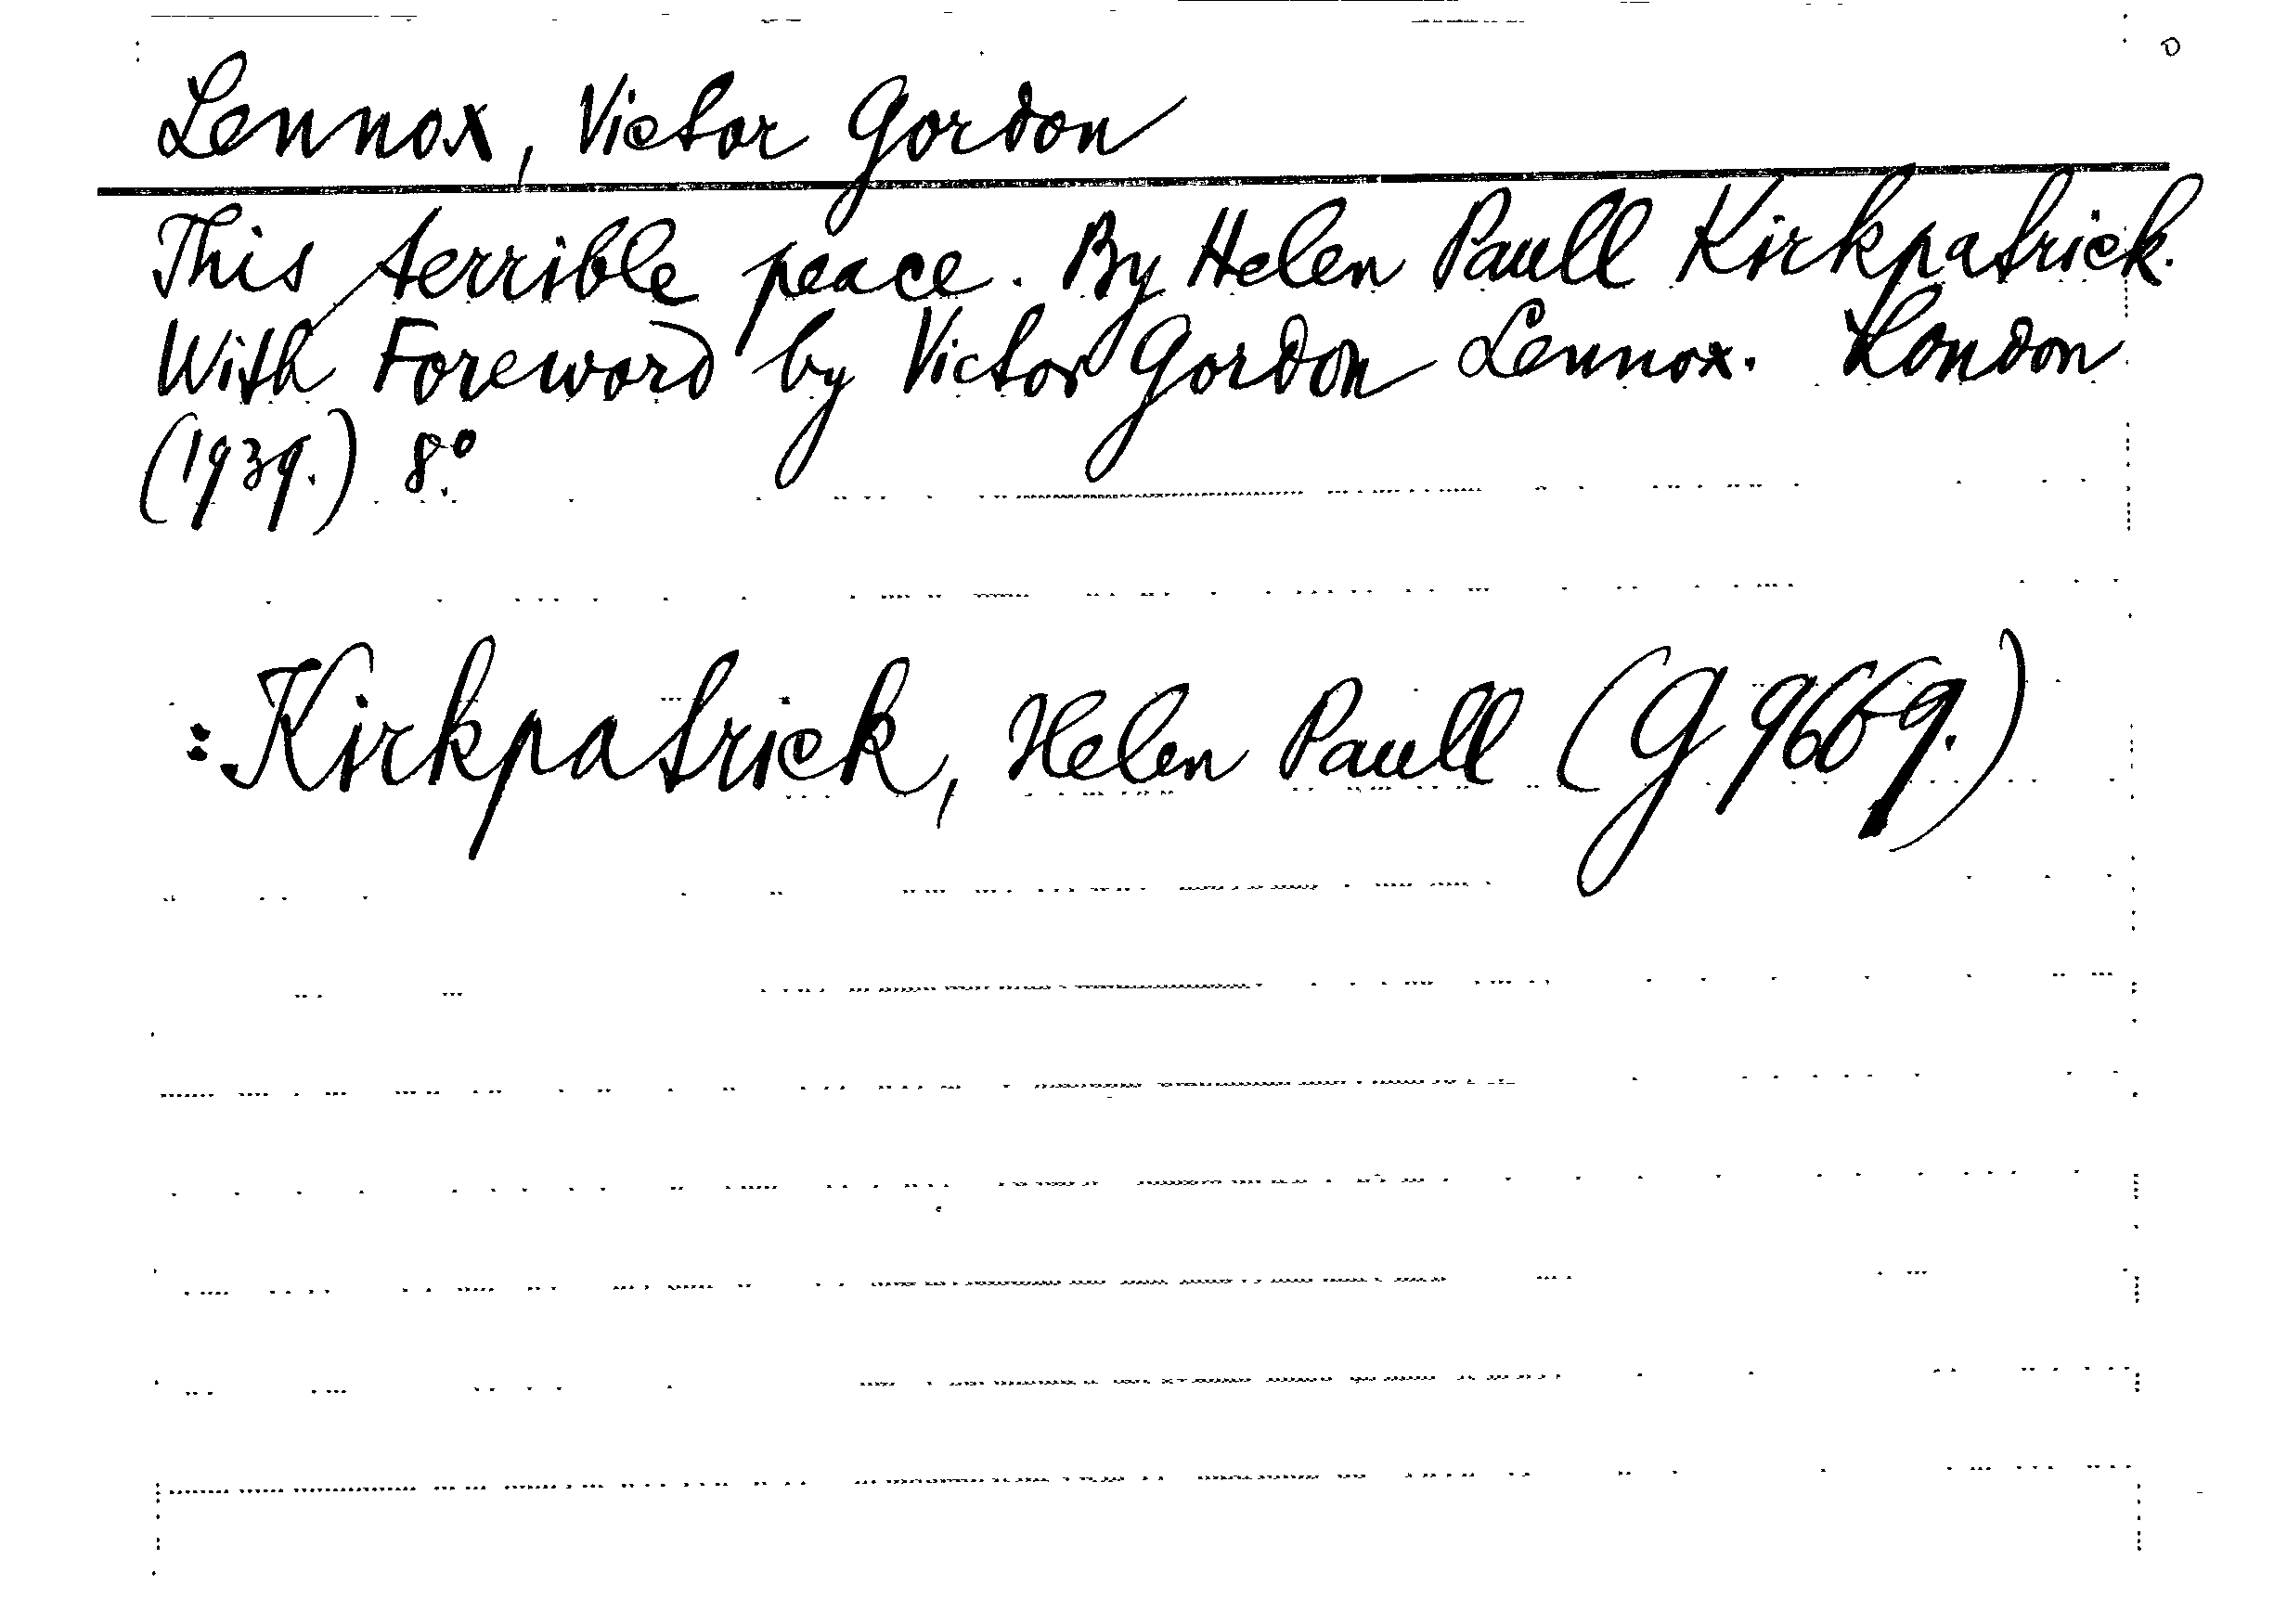 Lennox, Victor Gordon
This terrible peace. By Helen Paull Kirkpatrick.
With Foreword by Victor Gordon Lennox. London
(1939.) 8.º
: Kirkpatrick, Helen Paull (G 9669.)